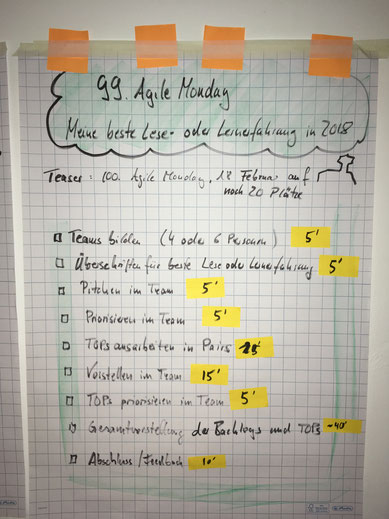 99. Agile Monday
Meine beste Lese- oder Lernerfahrung in 2018
Teaser: 100. Agile Monday, 18 Februar auf
noch 20 Plätze
Teams bilden (4 oder 6 Personen) 5'
Überschriften für beste Lese oder Lernerfahrung 5'
Pitchen im Team 5'
Priorisieren im Team 5'
TOPs ausarbeiten in Pairs
Vorstellen im Team 15'
TOPs priorisieren im Team 5'
Gesamtvorstellung der Backlogs und TOPs ~40'
Abschluss / Feedback 10'